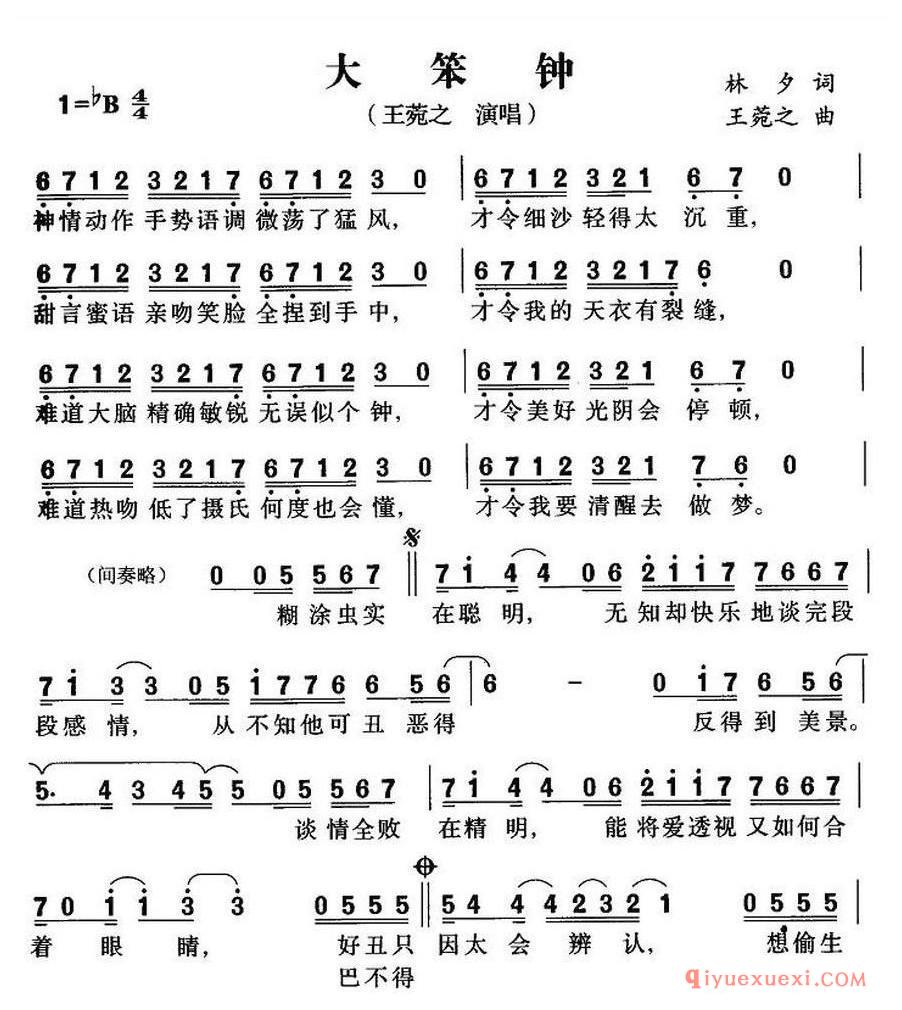 大笨钟
1=♭B 4/4
（王菀之 演唱）
林夕 词
王菀之 曲
6 7 1 2 3 2 1 7 6 7 1 2 3 0 | 6 7 1 2 3 2 1 6 7 0 |
神情动作 手势语调 微荡了猛风， 才令细沙 轻得太 沉重，
6 7 1 2 3 2 1 7 6 7 1 2 3 0 | 6 7 1 2 3 2 1 7 6 0 |
甜言蜜语 亲吻笑脸 全捏到手中， 才令我的 天衣有裂缝，
6 7 1 2 3 2 1 7 6 7 1 2 3 0 | 6 7 1 2 3 2 1 6 7 0 |
难道大脑 精确敏锐 无误似个钟， 才令美好 光阴会 停顿，
6 7 1 2 3 2 1 7 6 7 1 2 3 0 | 6 7 1 2 3 2 1 7 6 0 |
难道热吻 低了摄氏 何度也会懂， 才令我要 清醒去 做梦。
（间奏略） 0 0 5 5 6 7 7 1 4 4 0 6 2 1 1 7 7 6 6 7 |
糊涂虫实 在聪明， 无知却快乐 地谈完段
7 1 3 3 0 5 1 7 7 6 6 5 6 | 6 - 0 1 7 6 5 6 |
段感情， 从不知他可丑 恶得 反得到 美景。
5· 4 3 4 5 5 0 5 5 6 7 | 7 1 4 4 0 6 2 1 1 7 7 6 6 7 |
谈情全败 在精明， 能将爱透视 又如何合
7 0 1 1 3 3 0 5 5 5 5 4 4 4 2 3 2 1 0 5 5 5 |
着眼睛， 好丑只 因太会辨认， 想偷生
巴不得
qiyuexuexi.com